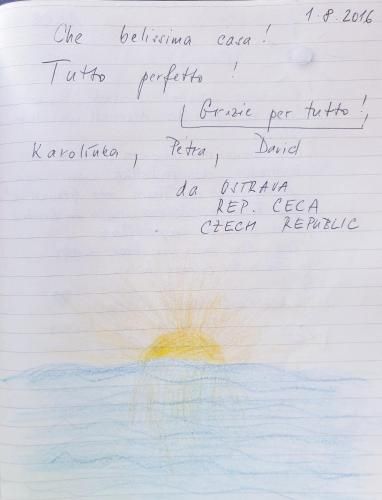 1.8.2016
Che belissima casa!
Tutto perfetto !
Grazie per tutto!,
Karolínka, Petra, David
da OSTRAVA
REP. CECA
CZECH REPUBLIC